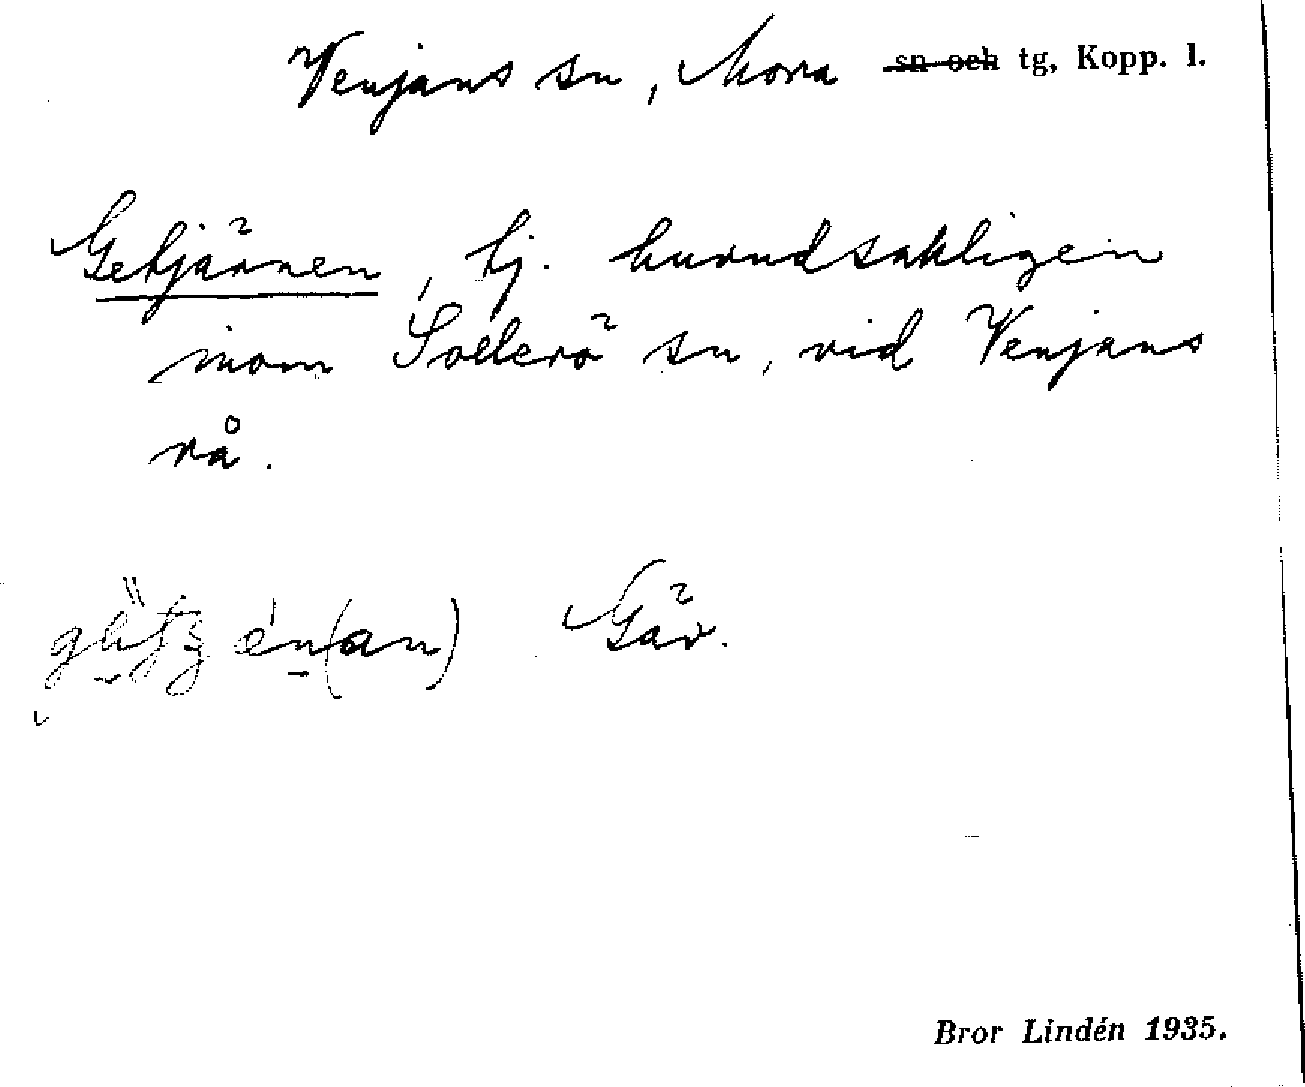 Venjans sn, Mora sn och tg, Kopp. l.
Getjärnen, tj. huvudsakligen
inom Sollerö sn, vid Venjans
rå.
Gäv.
Bror Lindén 1935.